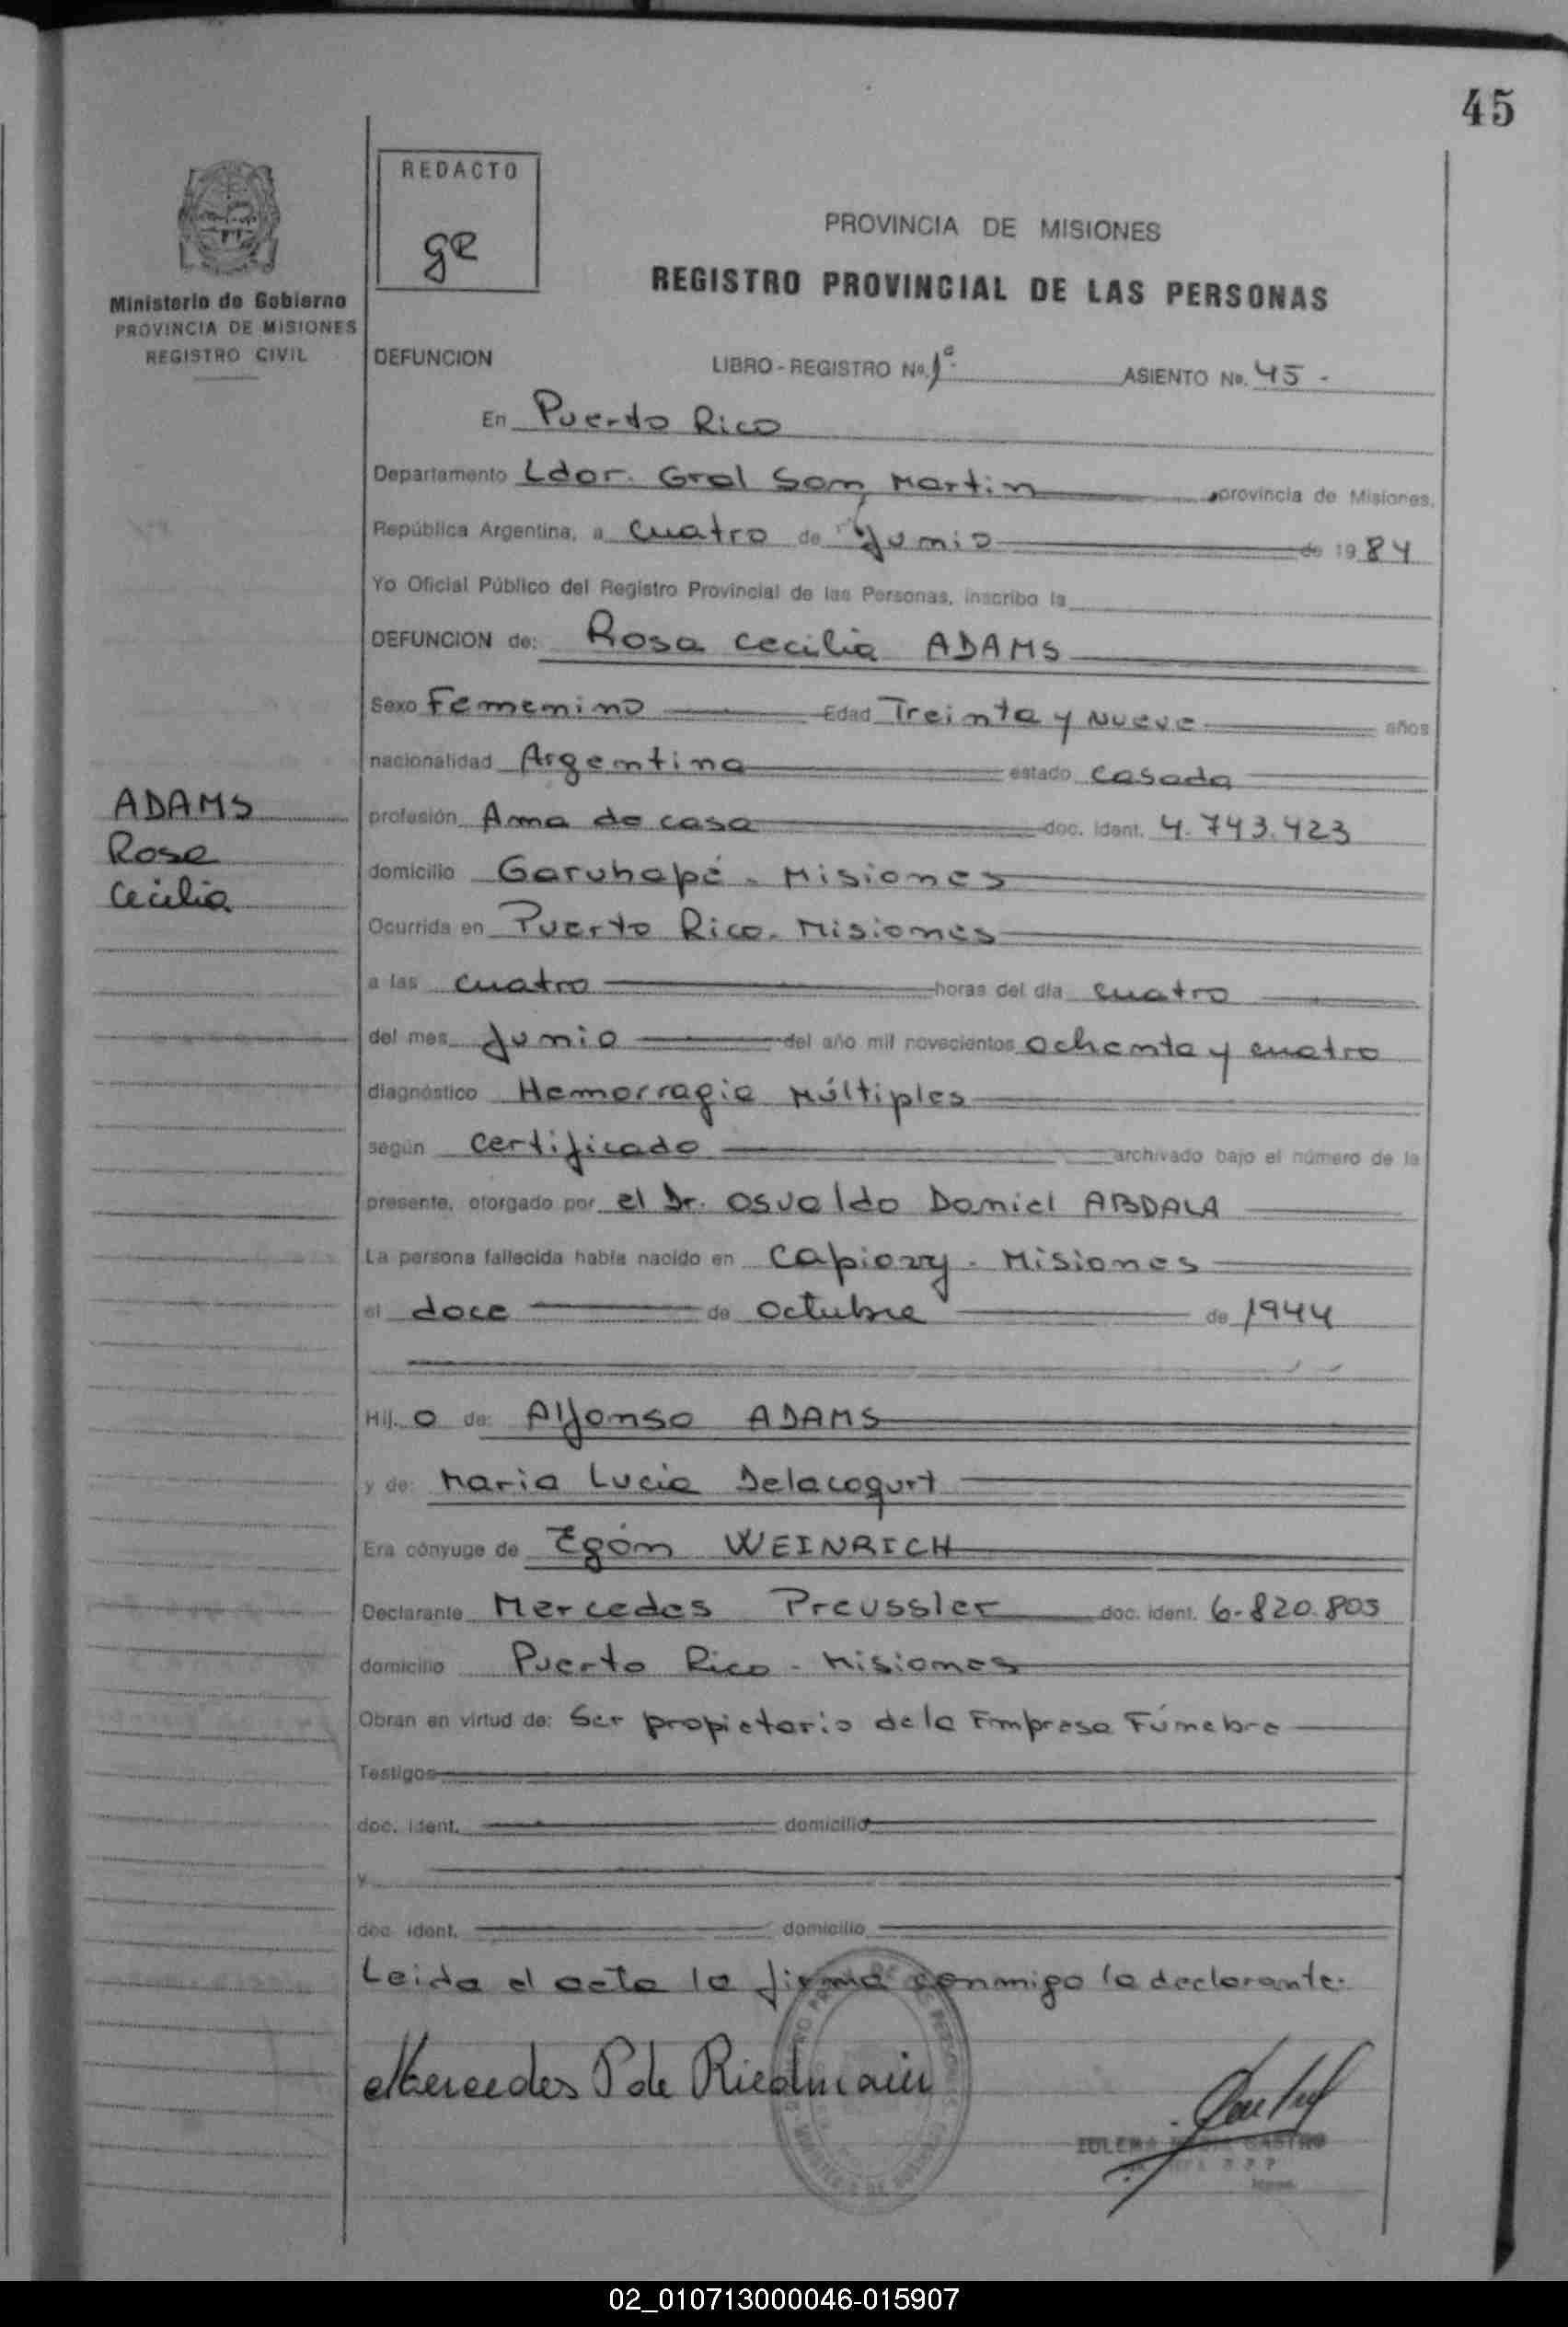 45
REDACTO
ge
Ministerio de Gobierno
PROVINCIA DE MISIONES
REGISTRO CIVIL
PROVINCIA DE MISIONES
REGISTRO PROVINCIAL DE LAS PERSONAS
DEFUNCION LIBRO - REGISTRO No. 1º. ASIENTO No. 45 -
En Puerto Rico
Departamento Ldor. Gral San Martin provincia de Misiones,
República Argentina, a cuatro de Junio de 1984
Yo Oficial Público del Registro Provincial de las Personas, inscribo la
DEFUNCION de: Rosa Cecilia ADAMS
Sexo Femenino Edad Treinta y Nueve años
nacionalidad Argentina estado casada
ADAMS
Rosa
Cecilia
profesión Ama de casa doc. ident. 4.743.423
domicilio Garuhapé - Misiones
Ocurrida en Puerto Rico - Misiones
a las cuatro horas del día cuatro
del mes Junio del año mil novecientos ochenta y cuatro
diagnóstico Hemorragia Múltiples
según certificado archivado bajo el número de la
presente, otorgado por el Dr. Osvaldo Daniel ABDALA
La persona fallecida había nacido en Capiovy - Misiones
el doce de octubre de 1944
Hij. o de: Alfonso ADAMS
y de: Maria Lucia Delacogurt
Era cónyuge de Egón WEINRICH
Declarante Mercedes Preussler doc. ident. 6.820.805
domicilio Puerto Rico - Misiones
Obran en virtud de: Ser propietario de la Empresa Fúnebre
Testigos
doc. ident. domicilio
y
doc. ident. domicilio
Leida el acta la firma conmigo la declarante.
Mercedes P de Riedmaier
CASTRO
02_010713000046-015907